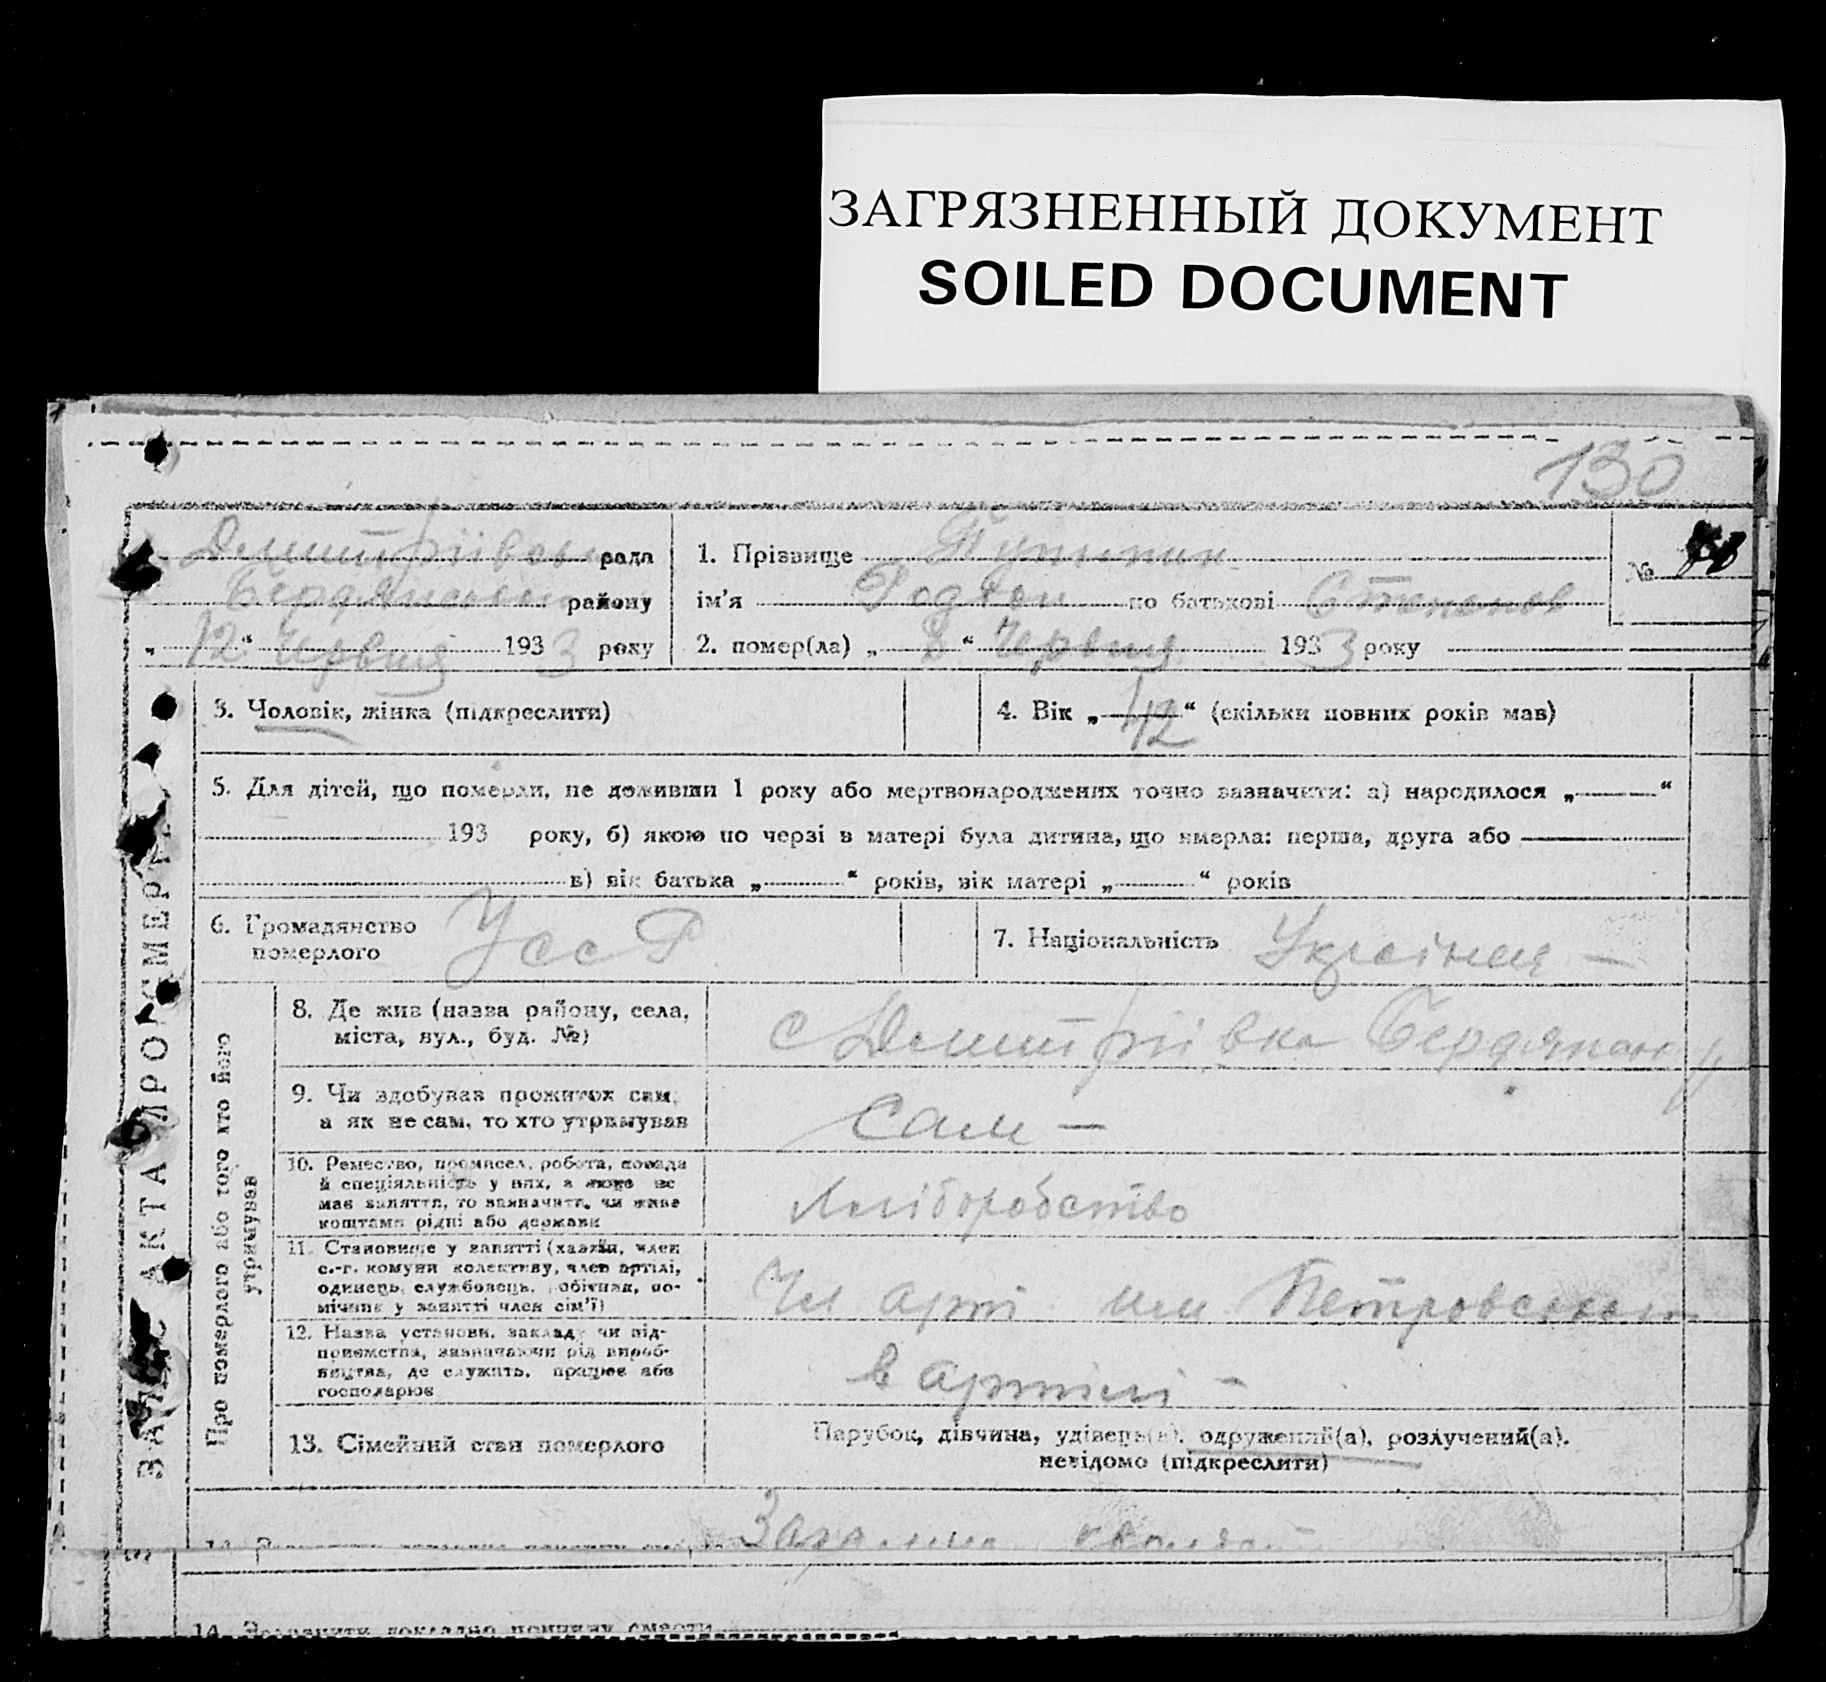 ЗАГРЯЗНЕННЫЙ ДОКУМЕНТ
SOILED DOCUMENT
130
рада
району
„12“ Червня 1933 року
1. Прізвище
№
ім’я Родіон по батькові Степанов
2. помер(ла) „ “ Червня 1933 року
3. Чоловік, жінка (підкреслити)
4. Вік „42“ (скільки повних років мав)
5. Для дітей, що померли, не доживши 1 року або мертвонароджених точно зазначити: а) народилося „ “
193 року, б) якою по черзі в матері була дитина, що вмерла: перша, друга або
в) вік батька „ “ років, вік матері „ “ років
6. Громадянство
померлого
УссР
7. Національність
ЗАПИС АКТА ПРО СМЕРТЬ
Про померлого або того хто його
утримував
8. Де жив (назва району, села,
міста, вул., буд. №)
с Дмитріівка
9. Чи здобував прожиток сам,
а як не сам, то хто утримував
Сам —
10. Ремество, промисел, робота, посада
й спеціяльність у них, а якже не
має заняття, то зазначити, чи живе
коштами рідні або держави
Хліборобство
11. Становище у занятті (хазяїн, член
с.-г. комуни колективу, член артілі,
одинець, службовець, робітник, по-
мічник у занятті член сім’ї)
Чл арті им
12. Назва установи, закладу чи під-
приємства, зазначаючи рід вироб-
ництва, де служить, працює або
господарює
в артілі —
13. Сімейний стан померлого
Парубок, дівчина, удівець(а), одружений(а), розлучений(а),
невідомо (підкреслити)
14. Зазначити докладно причину смерти